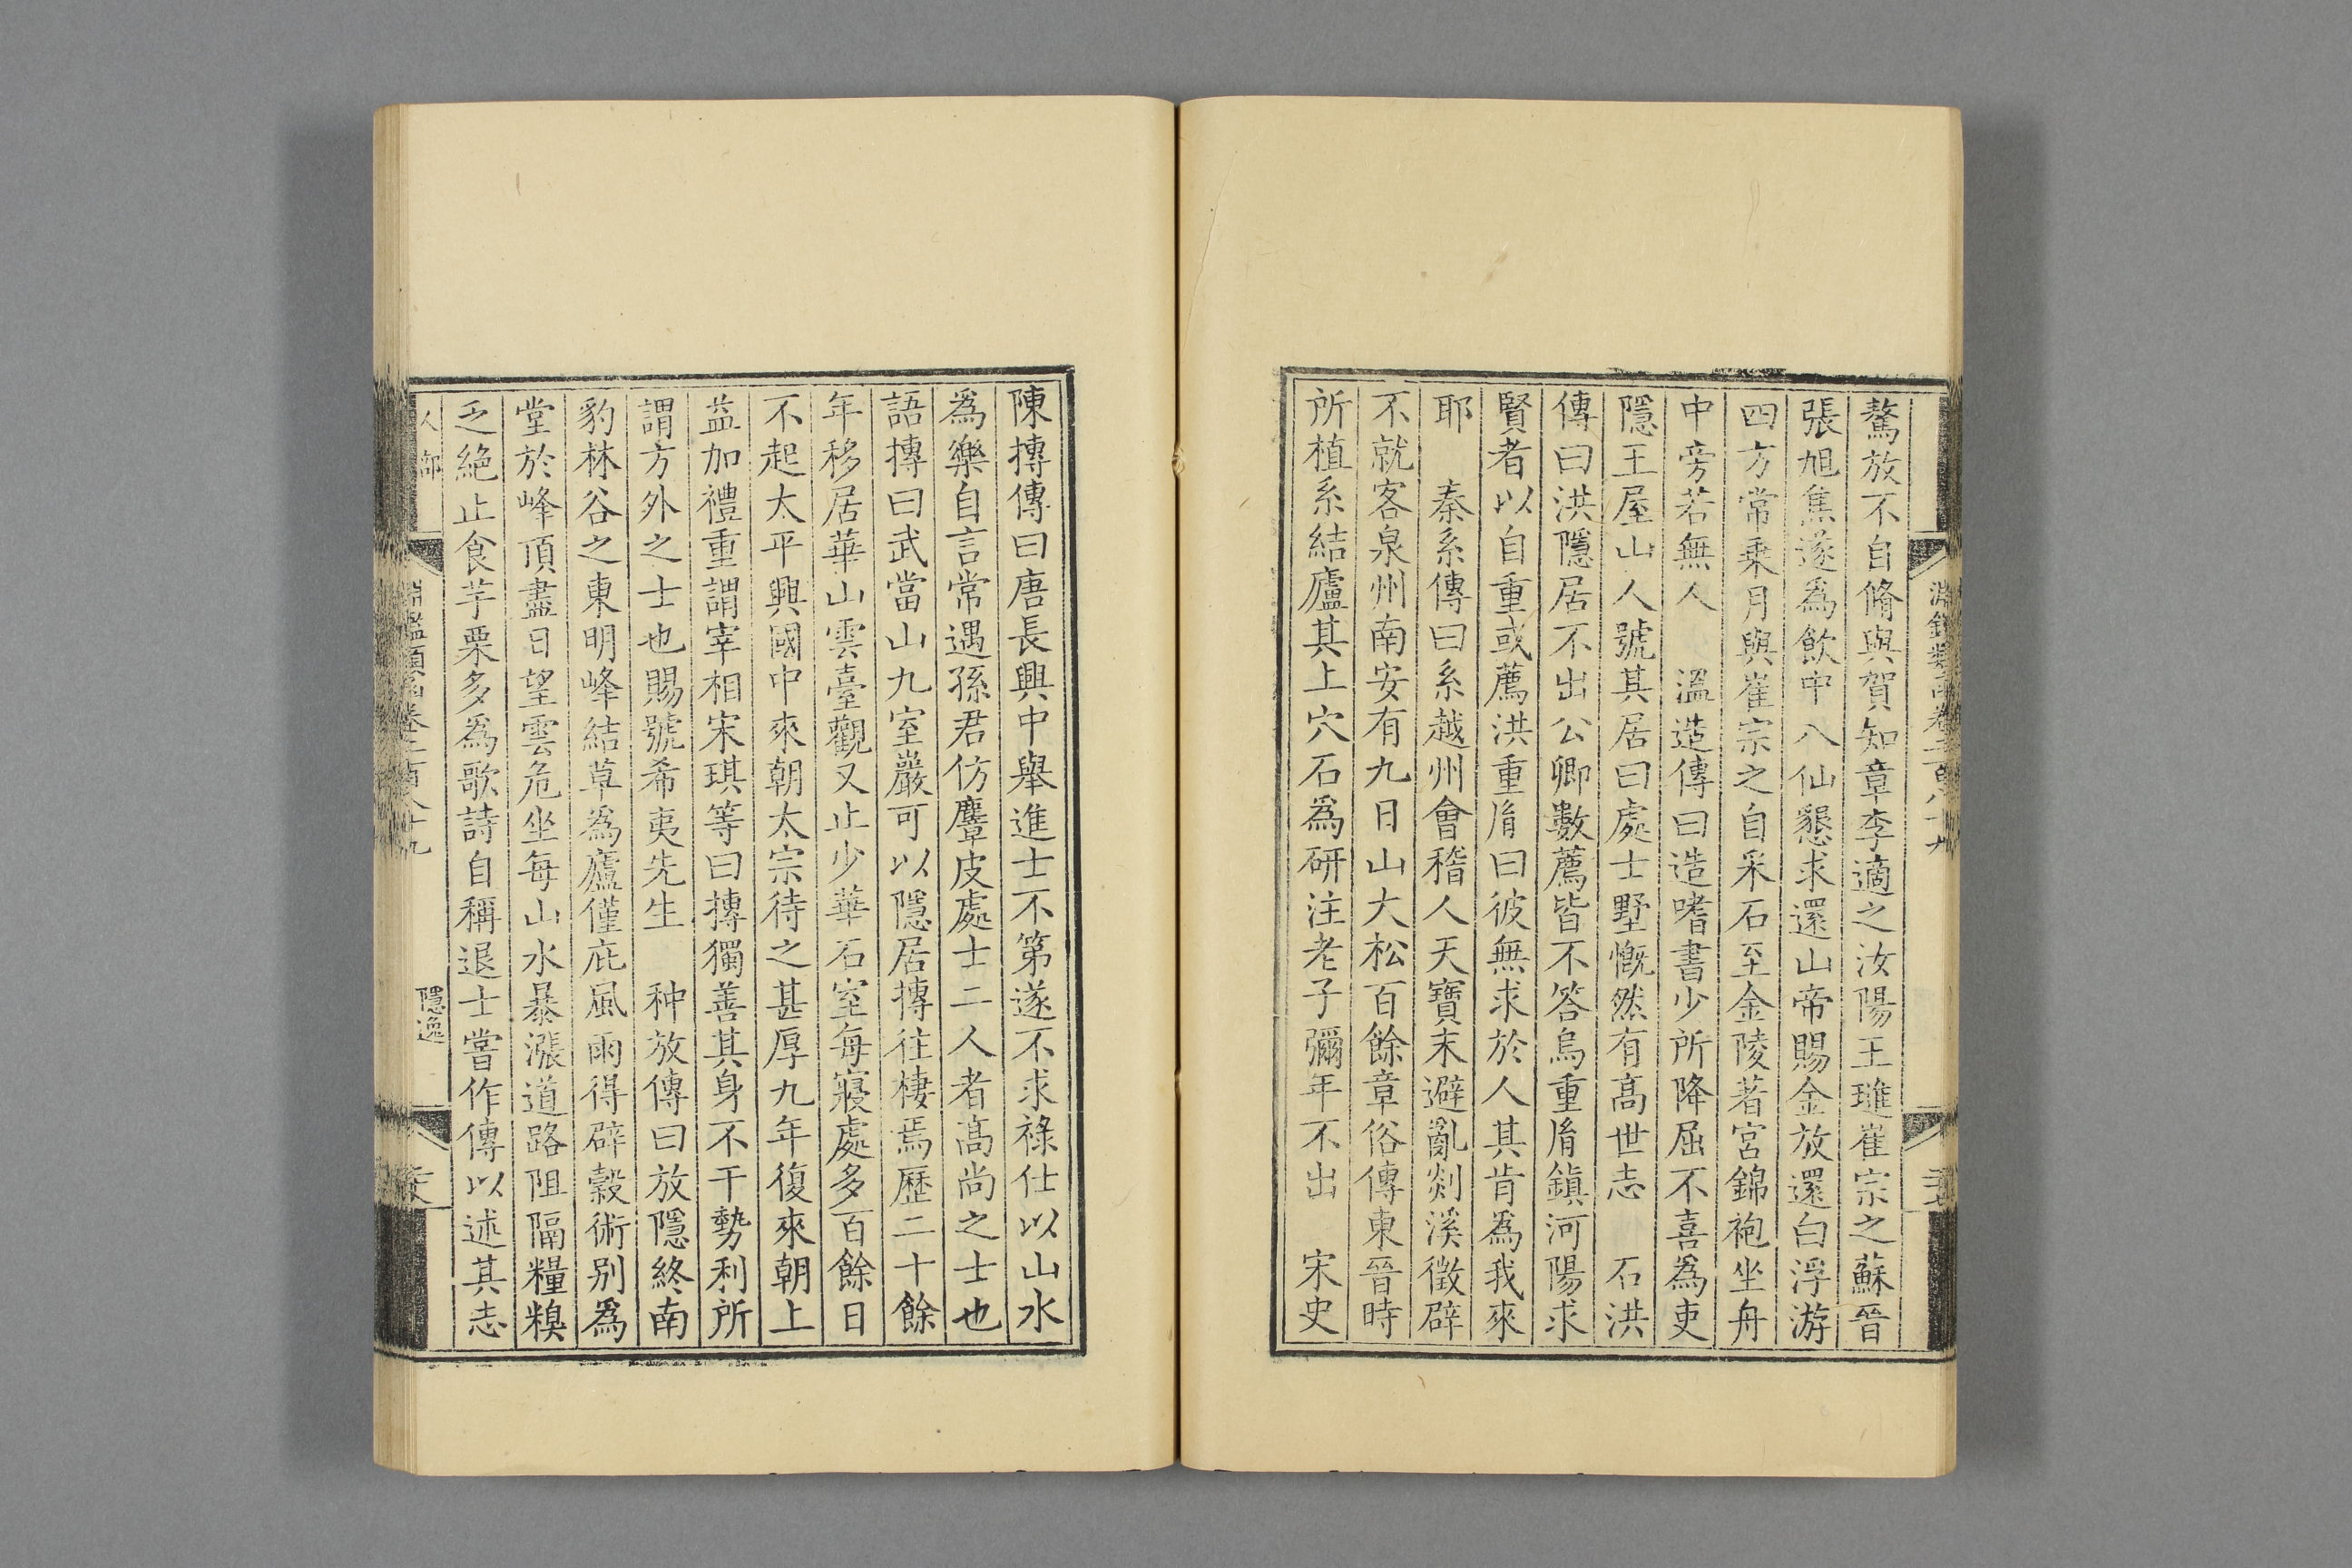 驁放不自脩與賀知章李適之汝陽王璡崔宗之蘇晉
張旭焦遂爲飲中八仙懇求還山帝賜金放還白浮游
四方常乘月與崔宗之自采石至金陵著宮錦袍坐舟
中旁若無人　溫造傳曰造嗜書少所降屈不喜爲吏
隱王屋山人號其居曰處士墅慨然有高世志　石洪
傳曰洪隱居不出公卿數薦皆不答烏重胤鎮河陽求
賢者以自重或薦洪重胤曰彼無求於人其肯爲我來
耶　秦系傳曰系越州會稽人天寶末避亂剡溪徵辟
不就客泉州南安有九日山大松百餘章俗傳東晉時
所植系結廬其上穴石爲研注老子彌年不出　宋史
陳摶傳曰唐長興中舉進士不第遂不求祿仕以山水
爲樂自言常遇孫君仿麞皮處士二人者高尚之士也
語摶曰武當山九室巖可以隱居摶往棲焉歷二十餘
年移居華山雲臺觀又止少華石室每寢處多百餘日
不起太平興國中來朝太宗待之甚厚九年復來朝上
益加禮重謂宰相宋琪等曰摶獨善其身不干勢利所
謂方外之士也賜號希夷先生　种放傳曰放隱終南
豹林谷之東明峰結草爲廬僅庇風雨得辟穀術別爲
堂於峰頂盡日望雲危坐每山水暴漲道路阻隔糧糗
乏絕止食芋栗多爲歌詩自稱退士嘗作傳以述其志
人部
淵鑑類函卷二百八十九
隱逸